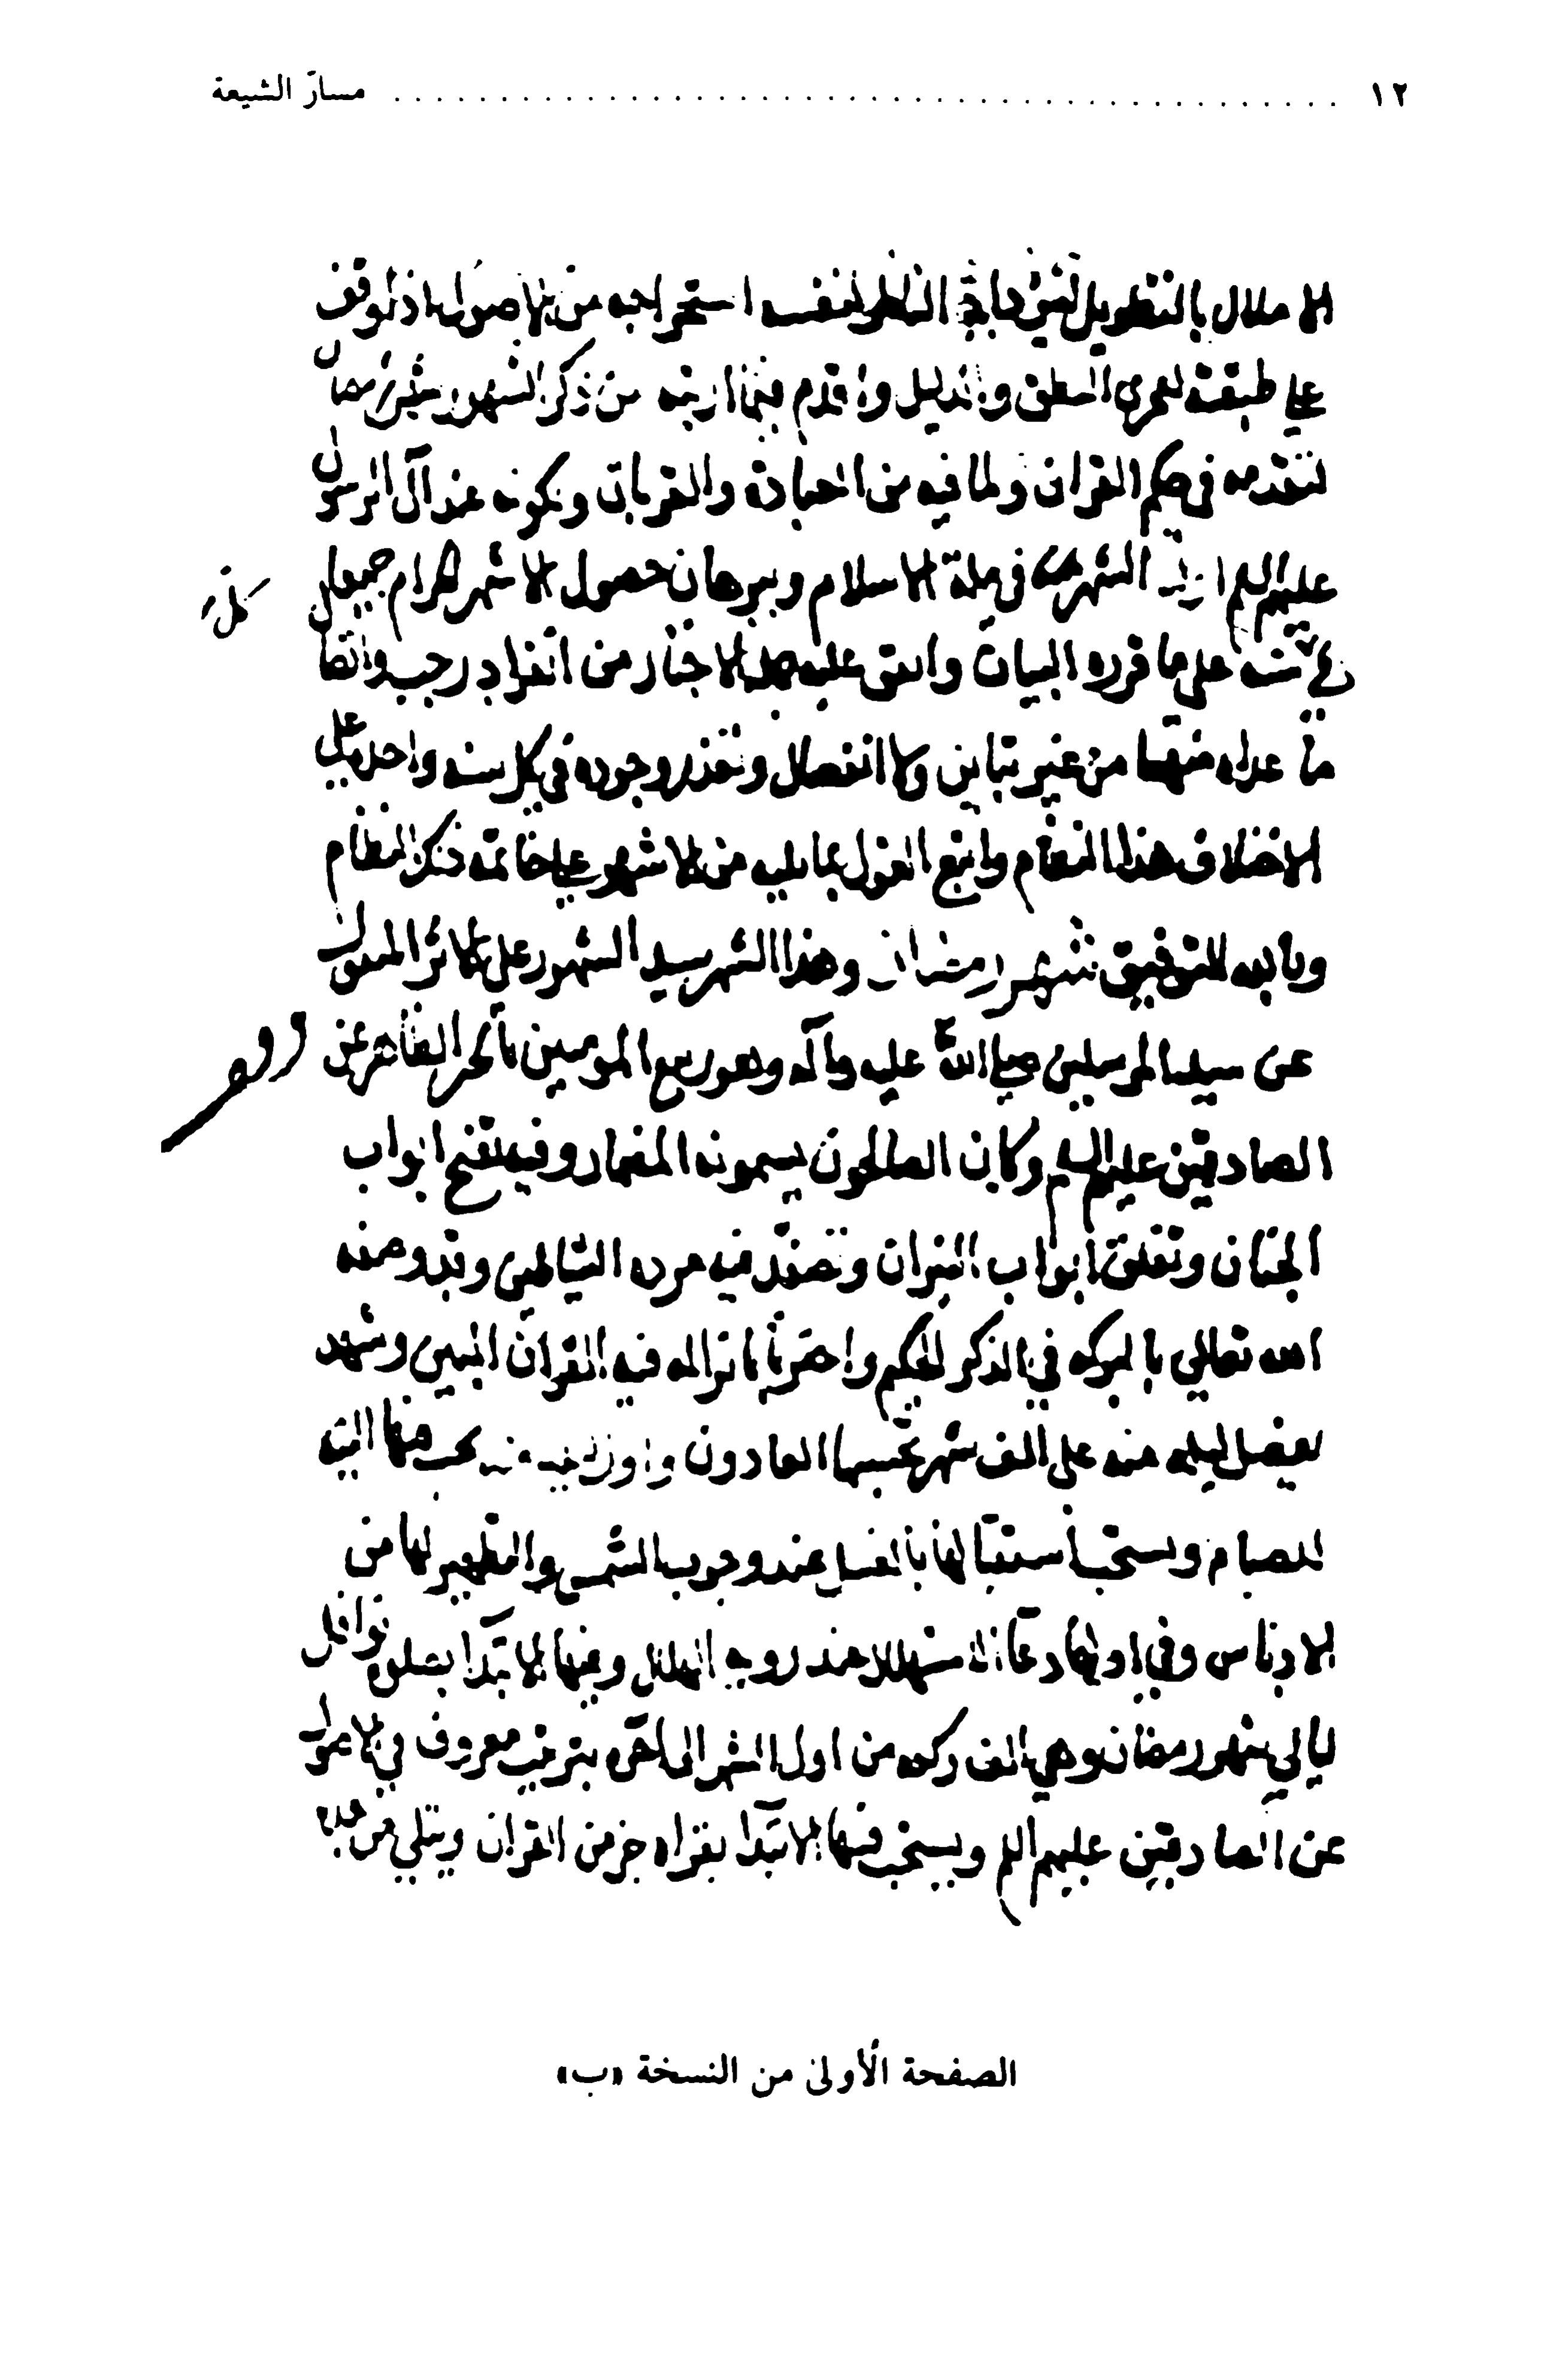 ١٢ ........................................ مسارّ الشيعة
الاملال بالتطويل الناظر استخراجه من الاصول اذ
على طبقته في المعرفة وأقدم فيما ارتبه من ذكر الشهور شهر رمضان
لتقدمه في حكم القران ولما فيه من العبادة والقربات ولكونه عند آل الرسول
عليهم السلم الشهور في ملة الاسلام وبرهان حصول الاشهر الحرم جميعا
كل
في سنة على ما قرره البيان واتى عليه الاخبار من انفراد رجب واتصال
ما عداه منها من غير تباين ولا انفصال وتعذر وجوده في كل سنة واحدة على
الاختلاف هذا النظام واتبع القول بما يليه من الاشهر على خاتمة ذكر النظام
وبالله التوفيق شهر رمضان وهذا الشهر سيد الشهور على الاثر المنقول
عن سيد المرسلين صلى الله عليه وآله وهو ربيع المومنين بالخبر الظاهر عن
الصادقين عليهم السلم وكان الصالحون يسمونه المضمار وفيه تفتح ابواب
الجنان وتغلق ابواب النيران وتصفد فيه مردة الشياطين وقد وصفه
الله تعالى بالبركة في الذكر الحكيم واخبر بانزاله فيه القران المبين وشهد
بفضل ليلة منه على الف شهر يحسبها العادون يجب فيها النية
للصيام ويستحب استقبالها بالغسل عند وجوب الشمس والتطهير لها من
الادناس وفي اولها دعا الاستهلال عند روية الهلال وفيها الابتدا بصلوة نوافل
ليالي شهر رمضان وهي الف ركعة من اول الشهر الى اخره بترتيب معروف في الاصول
عن الصادقين عليهم السلم ويستحب فيها الابتدا بقراة جز من القران ويتلى من
الصفحة الأولى من النسخة «ب»